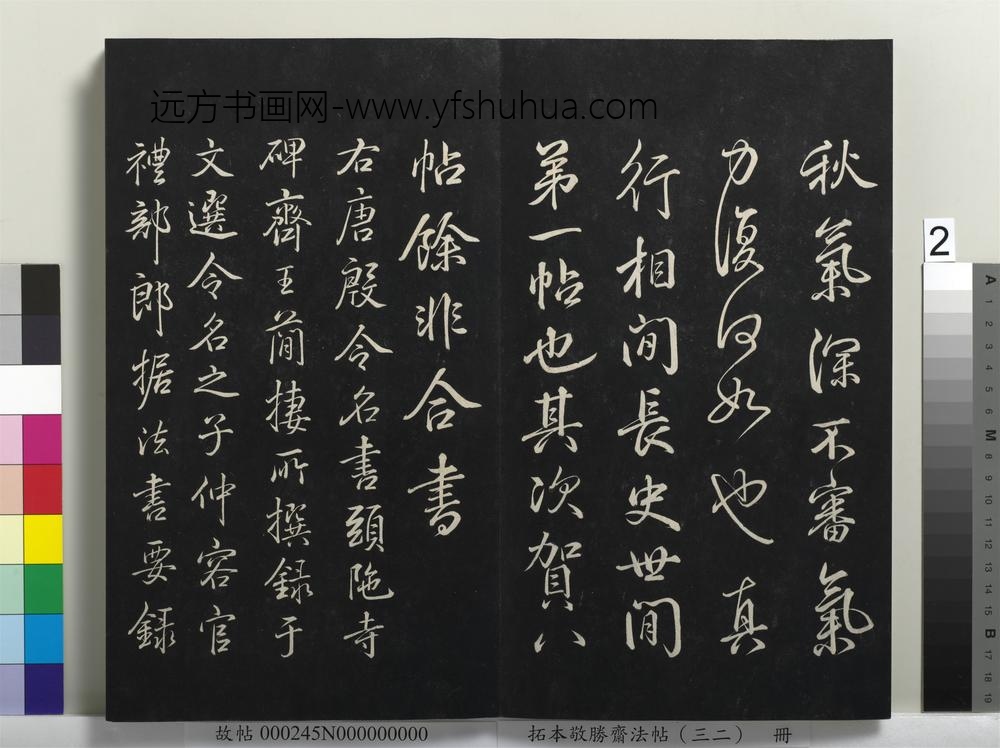 远方书画网-www.yfshuhua.com
秋氣深不審氣
力復何如也真
行相間長史世間
第一帖也其次賀八
帖餘非合書
右唐殷令名書頭陁寺
碑齊王簡棲所撰録于
文選令名之子仲容官
禮部郎据法書要録
2
A 1 2 3 4 5 6 M 8 9 10 11 12 13 14 15 B 17 18 19
故帖 000245N000000000
拓本敬勝齋法帖（三二） 冊